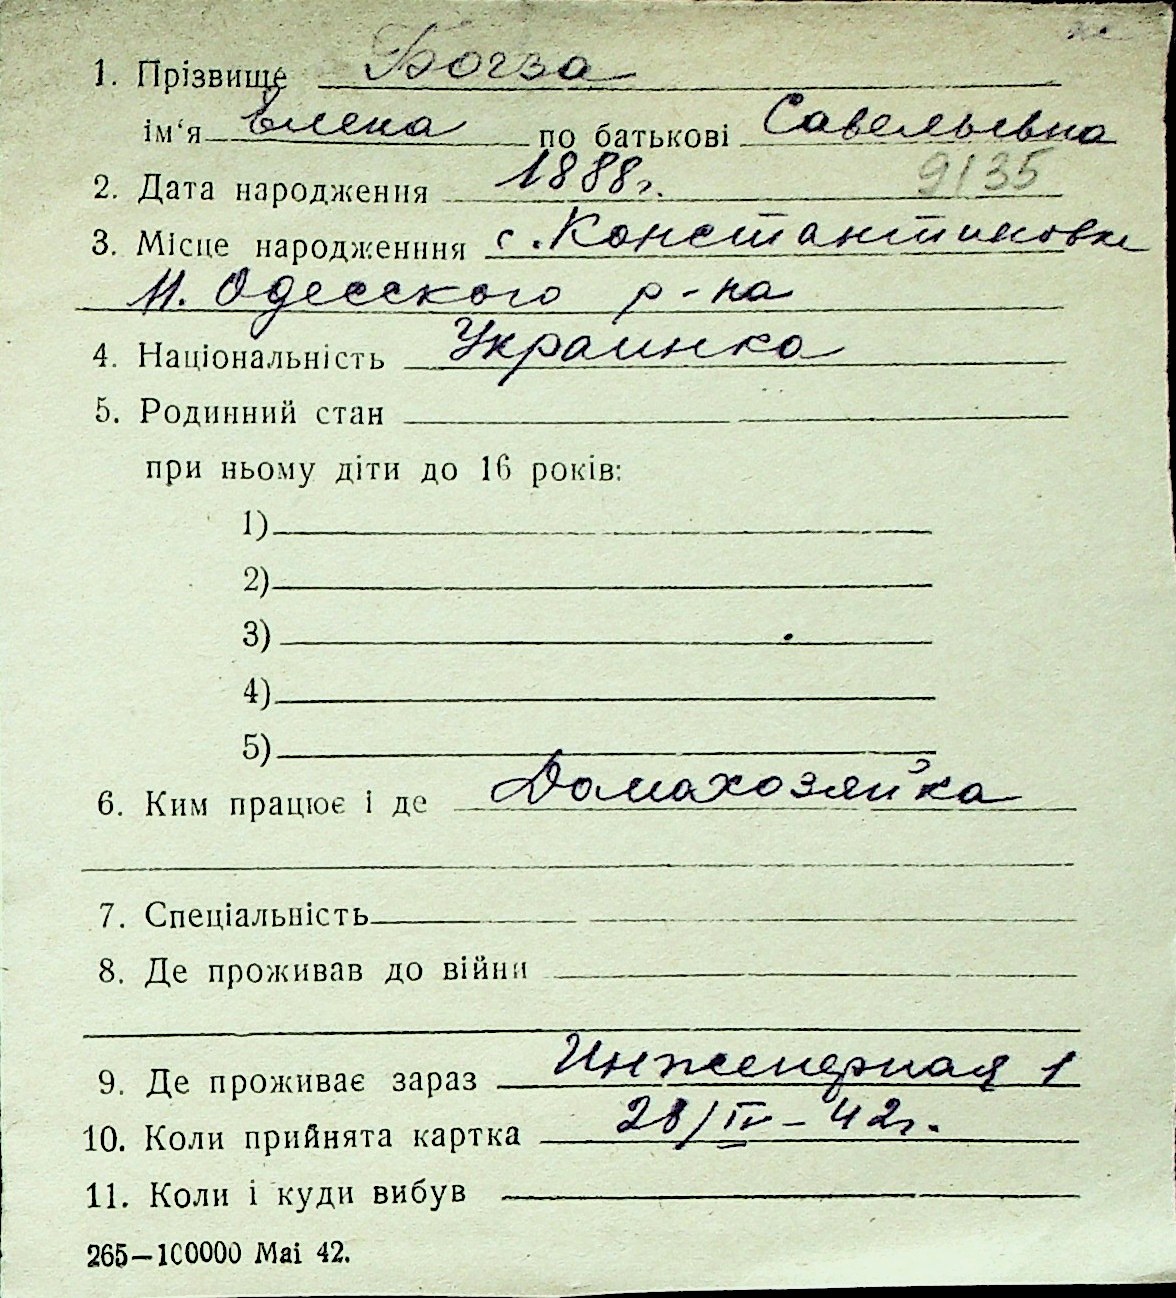 1. Прізвище Богза
ім'я Елена по батькові Савельевна
2. Дата народження 1888г. 9135
3. Місце народженння с. Константиновка
Н. Одесского р-на
4. Національність Украинка
5. Родинний стан
при ньому діти до 16 років:
1)
2)
3)
4)
5)
6. Ким працює і де Домахозяйка
7. Спеціальність
8. Де проживав до війни
9. Де проживає зараз Инженерная 1
10. Коли прийнята картка 28/IV-42г.
11. Коли і куди вибув
265—100000 Mai 42.